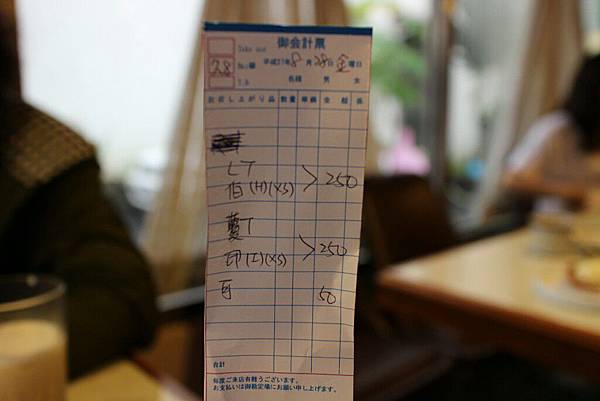 御会計票
Take out
No.
28
平成27年8月28日金曜日
T.A
名様 男 女
お召し上がり品 数量 単価 金額 係
LT
伯(H)(XS) > 250
蔓T
印(I)(XS) > 250
可 50
合計
毎度ご来店有難うございます。
お支払いは御勘定場にお願い申し上げます。